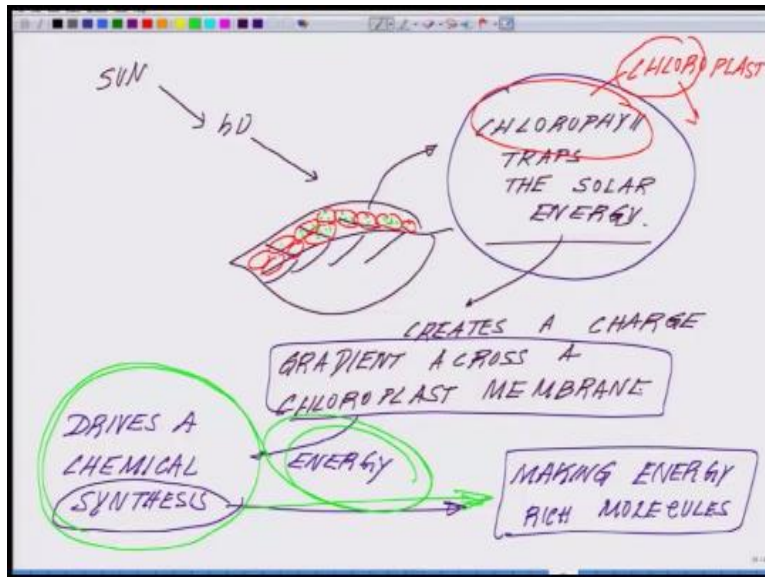 SUN
hυ
CHLOROPLAST
CHLOROPHYLL
TRAPS
THE SOLAR
ENERGY.
CREATES A CHARGE
GRADIENT ACROSS A
CHLOROPLAST MEMBRANE
DRIVES A
CHEMICAL
SYNTHESIS
ENERGY
MAKING ENERGY
RICH MOLECULES